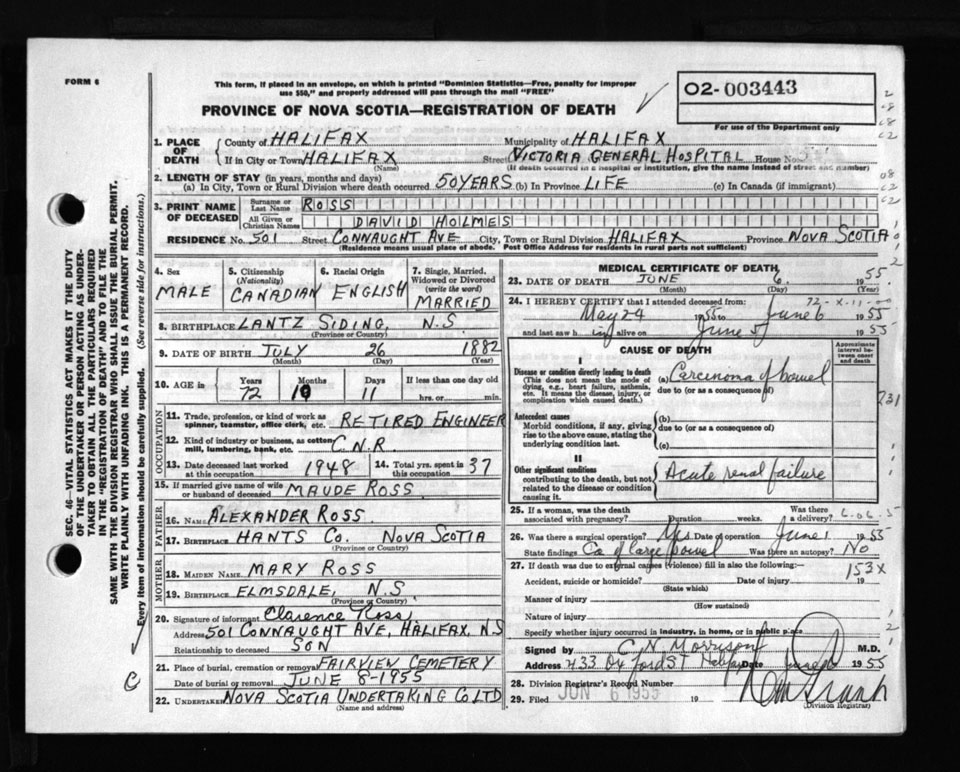 FORM 6
This form, if placed in an envelope, on which is printed "Dominion Statistics—Free, penalty for improper
use $50," and properly addressed will pass through the mail "FREE"
PROVINCE OF NOVA SCOTIA—REGISTRATION OF DEATH
02-003443
For use of the Department only
SEC. 46—VITAL STATISTICS ACT MAKES IT THE DUTY
OF THE UNDERTAKER OR PERSON ACTING AS UNDER-
TAKER TO OBTAIN ALL THE PARTICULARS REQUIRED
IN THE "REGISTRATION OF DEATH" AND TO FILE THE
SAME WITH THE DIVISION REGISTRAR WHO SHALL ISSUE THE BURIAL PERMIT.
WRITE PLAINLY WITH UNFADING INK. THIS IS A PERMANENT RECORD.
Every item of information should be carefully supplied. (See reverse side for instructions.)
1. PLACE OF DEATH County of HALIFAX Municipality of HALIFAX
If in City or Town HALIFAX (Name) Street VICTORIA GENERAL HOSPITAL House No.
(If death occurred in a hospital or institution, give the name instead of street and number)
2. LENGTH OF STAY (in years, months and days)
(a) In City, Town or Rural Division where death occurred 50 YEARS (b) In Province LIFE (c) In Canada (if immigrant)
3. PRINT NAME OF DECEASED Surname or Last Name ROSS
All Given or Christian Names DAVID HOLMES
RESIDENCE No. 501 Street CONNAUGHT AVE City, Town or Rural Division HALIFAX Province NOVA SCOTIA
(Residence means usual place of abode. Post Office Address for residents in rural parts not sufficient)
4. Sex MALE
5. Citizenship (Nationality) CANADIAN
6. Racial Origin ENGLISH
7. Single, Married, Widowed or Divorced (write the word) MARRIED
8. BIRTHPLACE LANTZ SIDING, N.S.
(Province or Country)
9. DATE OF BIRTH JULY 26 1882
(Month) (Day) (Year)
10. AGE in Years 72 Months 10 Days 11 If less than one day old
hrs. or min.
OCCUPATION
11. Trade, profession, or kind of work as
spinner, teamster, office clerk, etc. RETIRED ENGINEER
12. Kind of industry or business, as cotton
mill, lumbering, bank, etc. C.N.R
13. Date deceased last worked
at this occupation 1948 14. Total yrs. spent in
this occupation 37
15. If married give name of wife
or husband of deceased MAUDE ROSS
FATHER
16. NAME ALEXANDER ROSS
17. BIRTHPLACE HANTS Co. NOVA SCOTIA
(Province or Country)
MOTHER
18. MAIDEN NAME MARY ROSS
19. BIRTHPLACE ELMSDALE, N.S
(Province or Country)
20. Signature of informant Clarence Ross
Address 501 CONNAUGHT AVE, HALIFAX, N.S
Relationship to deceased SON
21. Place of burial, cremation or removal FAIRVIEW CEMETERY
Date of burial or removal JUNE 8-1955
22. UNDERTAKER NOVA SCOTIA UNDERTAKING CO LTD
(Name and address)
MEDICAL CERTIFICATE OF DEATH
23. DATE OF DEATH JUNE 6 1955
(Month) (Day) (Year)
24. I HEREBY CERTIFY that I attended deceased from: 72-X-11-00
May 24 1955 to June 6 1955
and last saw him alive on June 5 1955
CAUSE OF DEATH
Approximate interval between onset and death
I
Disease or condition directly leading to death
(This does not mean the mode of
dying, e.g., heart failure, asthenia,
etc. It means the disease, injury, or
complication which caused death.)
(a) Carcinoma of bowel
due to (or as a consequence of)
Antecedent causes
Morbid conditions, if any, giving
rise to the above cause, stating the
underlying condition last.
(b)
due to (or as a consequence of)
(c)
II
Other significant conditions
contributing to the death, but not
related to the disease or condition
causing it.
Acute renal failure
25. If a woman, was the death
associated with pregnancy? Duration weeks. Was there a delivery?
26. Was there a surgical operation? Yes Date of operation June 1 1955
State findings Ca of large bowel Was there an autopsy? No
27. If death was due to external causes (violence) fill in also the following:—
153X
Accident, suicide or homicide? Date of injury 19
(State which)
Manner of injury
(How sustained)
Nature of injury
Specify whether injury occurred in industry, in home, or in public place
Signed by C N Morrison M.D.
Address 433 Oxford ST Halifax Date June 6 1955
28. Division Registrar's Record Number
29. Filed JUN 6 1955 19
(Division Registrar)